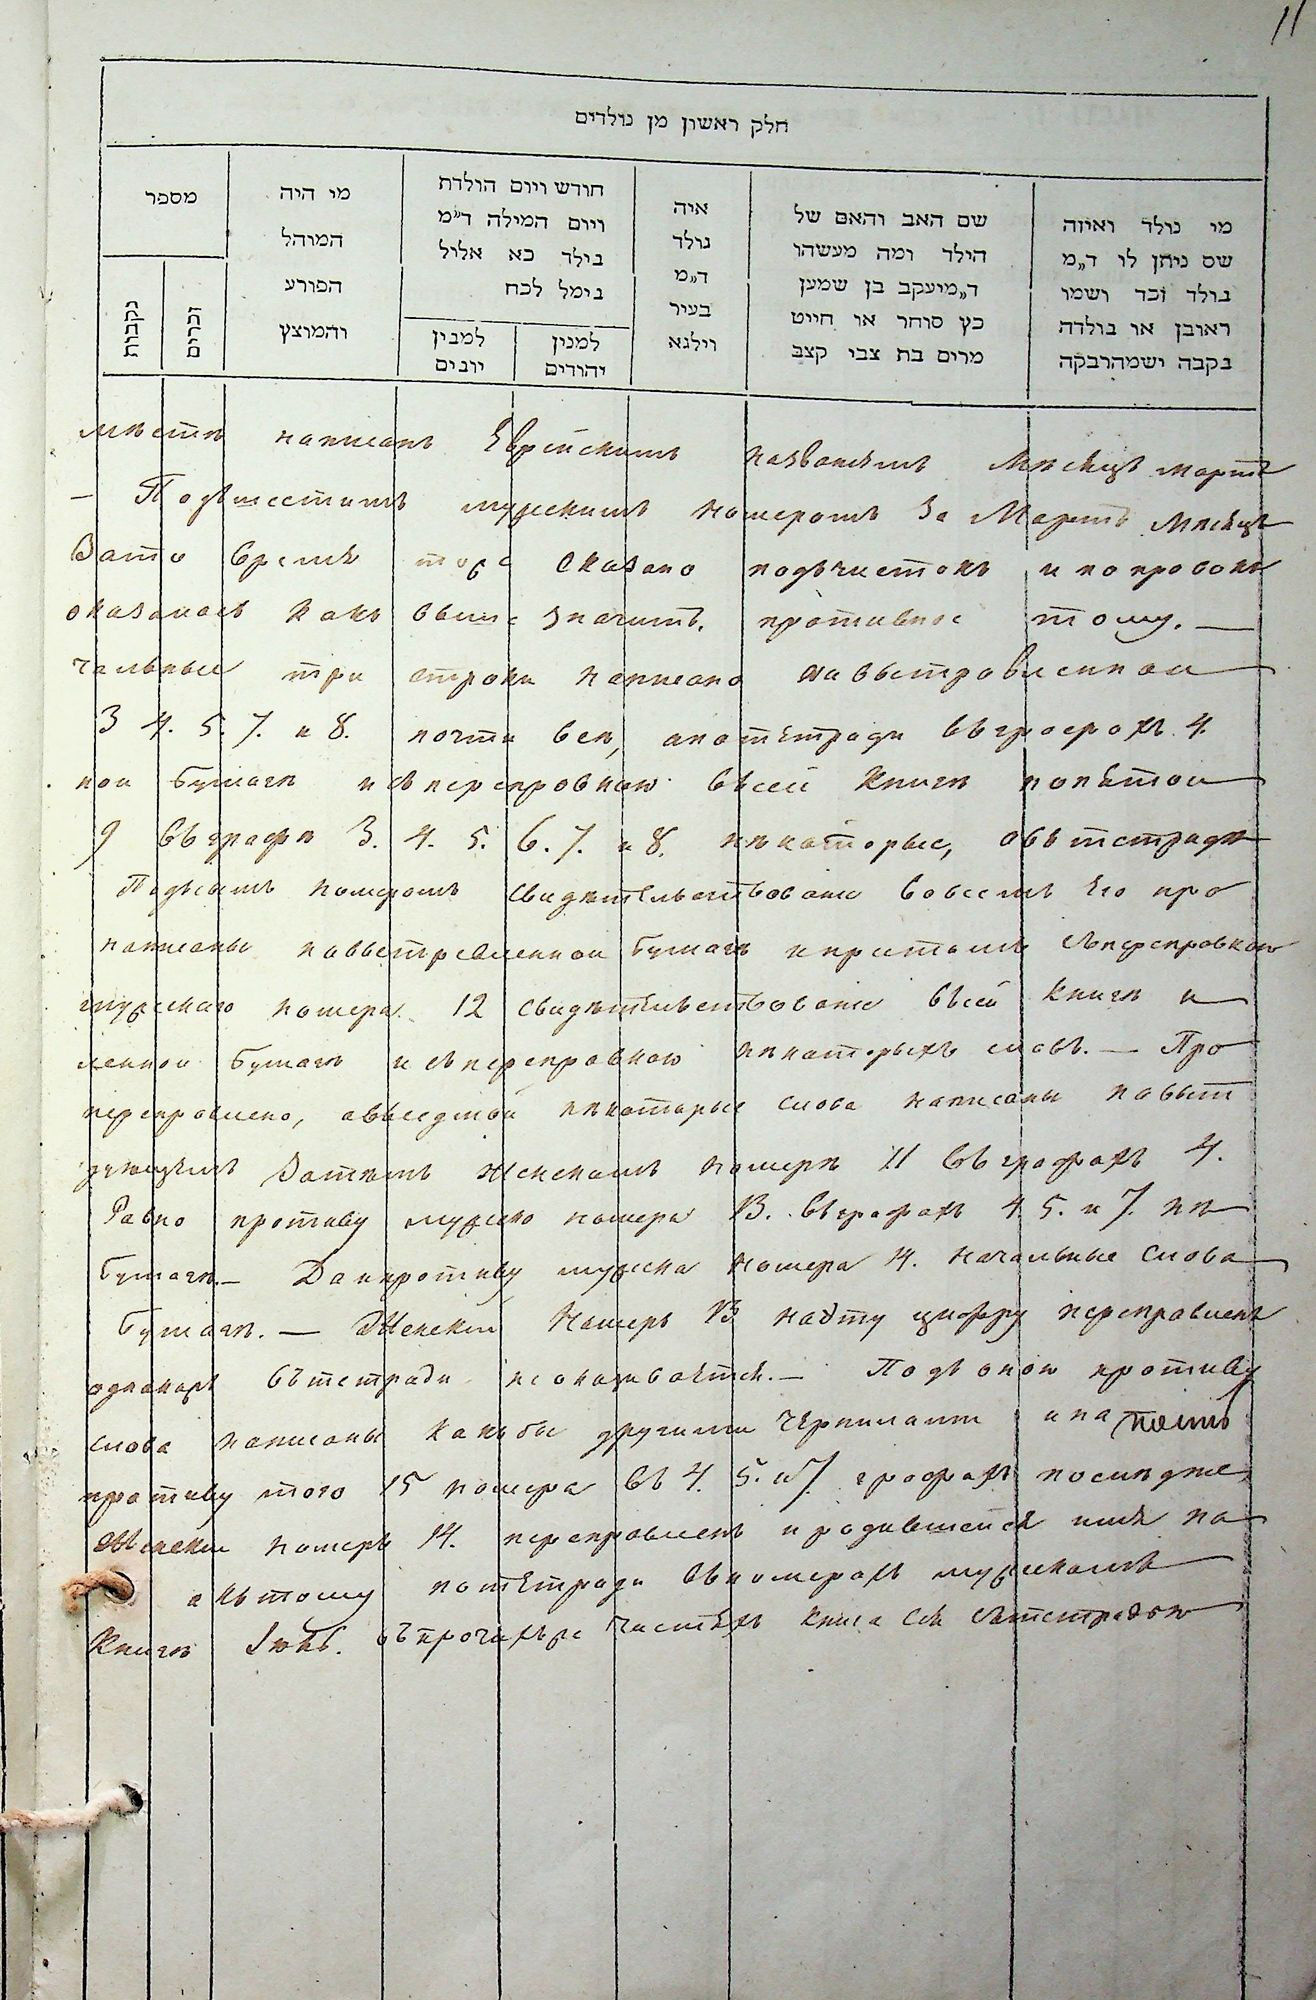 11
חלק ראשון מן נולדים
מי נולד ואיזה
שם ניתן לו ד״מ
בולד זכר ושמו
ראובן או בולדה
נקבה ישמהרבקה
שם האב והאם של
הילד ומה מעשהו
ד״מיעקב בן שמען
כץ סוחר או חייט
מרים בת צבי קצב
איה
נולד
ד״מ
בעיר
וילנא
חודש ויום הולדת
ויום המילה ד״מ
בילד כא אלול
נימל לכח
למנין
יהודים
למבין
יונים
מי היה
המוהל
הפורע
והמוצץ
מספר
זכרים
נקבות
мѣстѣ написанъ Еврейскимъ названіемъ мѣсяцъ мартъ
— Подъ шестымъ мужскимъ номеромъ за Мартъ мѣсяцъ
Вато время тоже сказано подъчисткѣ и поправкѣ
оказалось какъ выше значитъ противное тому. —
чальные три строки написано навыстровленной
3 4. 5. 7. и 8. почти всѣ, а по тетради въ графахъ 4.
ной бумагѣ и съ переправкою въсей книгѣ попятой
9 въ графѣ 3. 4. 5. 6. 7. и 8. нѣкоторые, объ тетради
Подъсимъ номеромъ свидѣтельствовано вовсемъ его про
написаны навыстровленной бумагѣ и притомъ съ переправкою
мужскаго номера 12 свидѣтельствовано въсей книгѣ и
ленной бумагѣ и съ переправкою нѣкоторыхъ словъ. — Про
переправлено, а въ седмой нѣкоторые слова написаны на выст
дующемъ Затѣмъ женскомъ номерѣ 11 въ графахъ 4.
Равно противу мужско номера 13. въ графахъ 4. 5. и 7. нѣ
бумагѣ. — Да и противу мужска номера 14. начальные слова
бумагѣ. — Женскій номеръ 13 на эту цифру переправленъ
однакожъ въ тетради не оказывается. — Подъ оною противу
слова написаны какъ бы другими чернилами и на
противу того 15 номера въ 4. 5. и 7. графахъ послѣдніе
Женскій номеръ 14. переправленъ и родившейся имя на
а къ тому по тетради въ номерахъ мужскомъ
Книгѣ въ прочихъ же частяхъ книга сія съ тетрадью